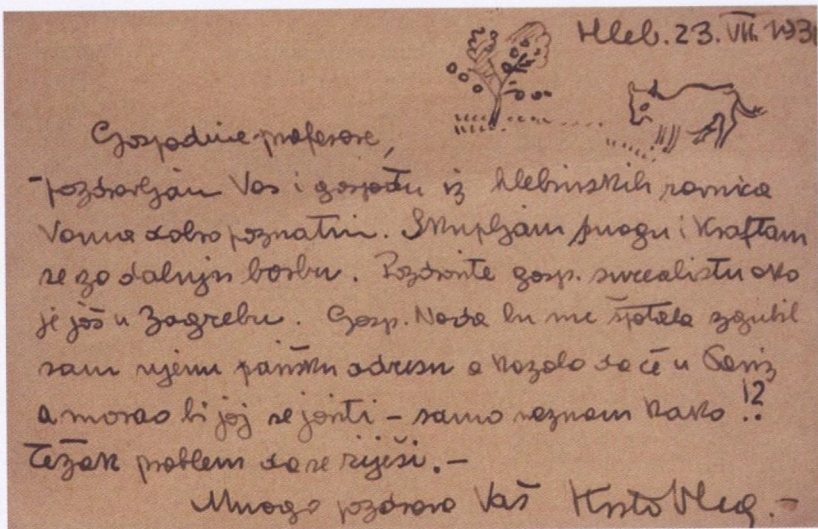 Hleb. 23. VII. 193
Gospodine profesore,
- pozdravljam Vas i gospođu iz hlebinskih ravnica
Vama dobro poznatim. Skupljam snagu i kraftam
se za daljnju borbu. Pozdravite gosp. surealistu ako
je još u Zagrebu. Gosp. Nada bu me špotala zgubil
sam njenu parišku adresu a kazala da će u Pariz
a morao bi joj se javiti – samo neznam kako !?
Težak problem da se riješi. –
Mnogo pozdrava Vaš Krsto Heg. –